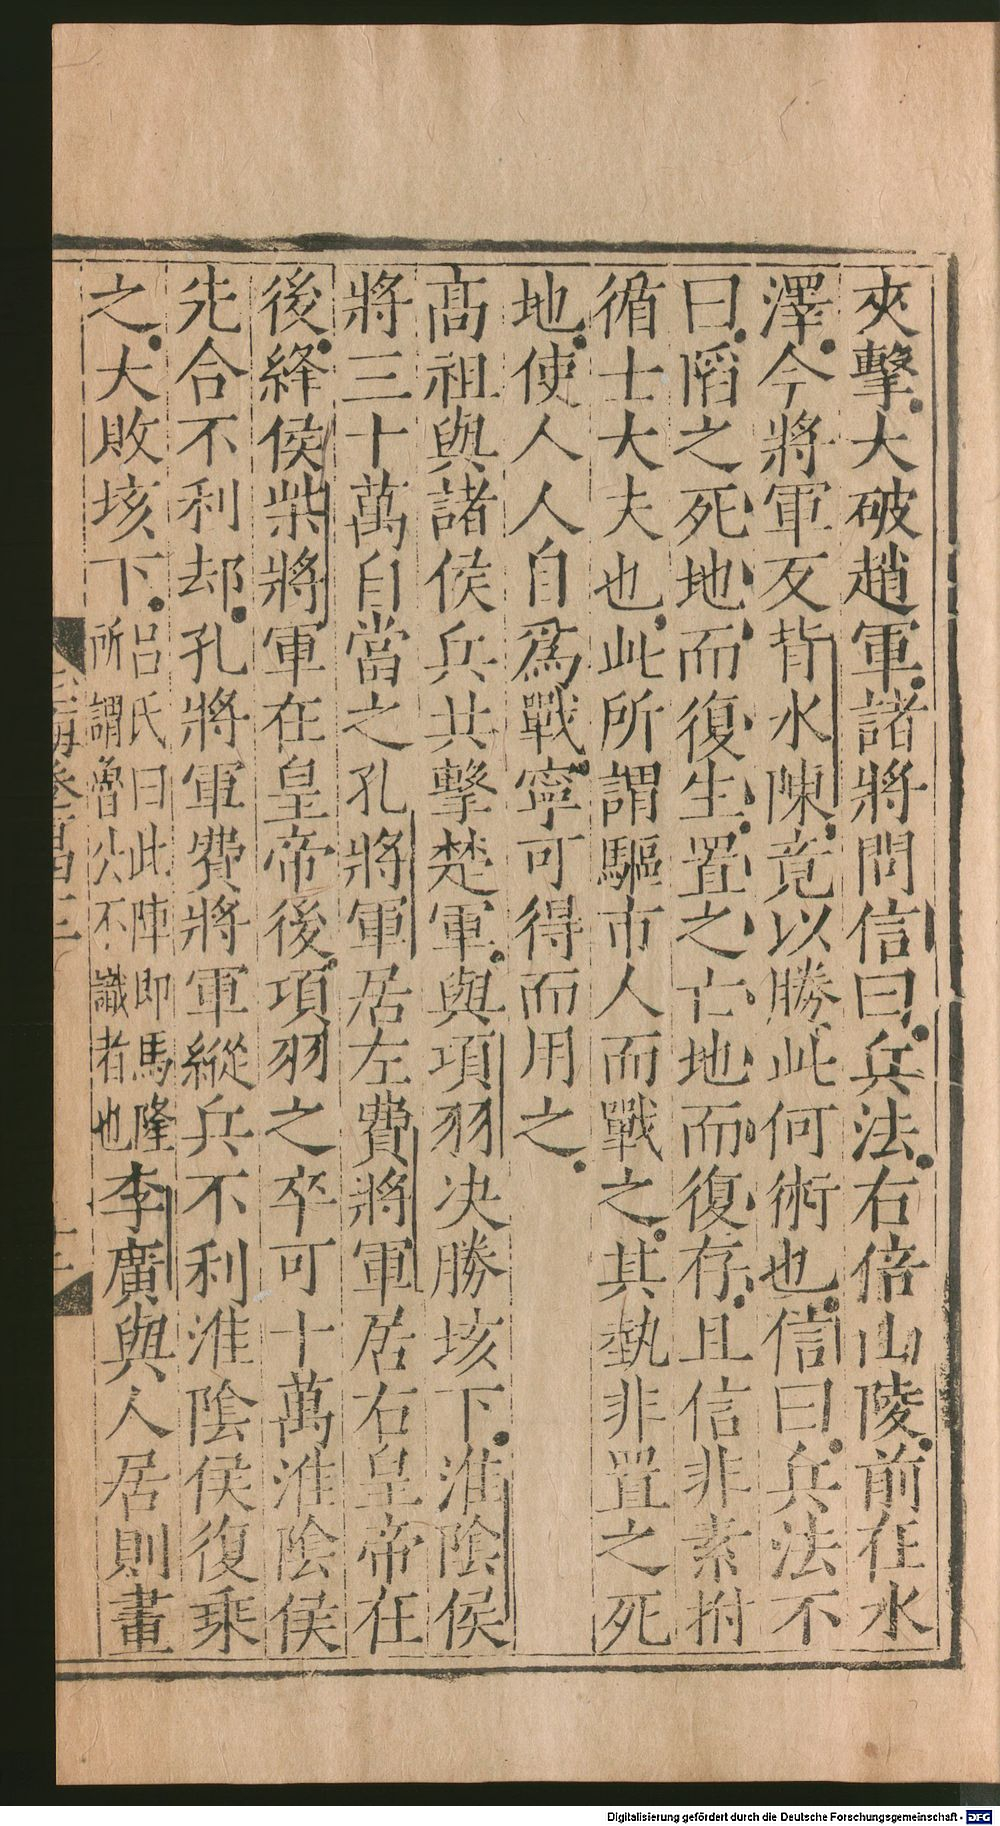 夾擊大破趙軍諸將問信曰兵法右倍山陵前在水
澤今將軍反背水陳竟以勝此何術也信曰兵法不
曰䧟之死地而復生置之亡地而復存且信非素拊
循士大夫也此所謂驅市人而戰之其埶非置之死
地使人人自爲戰寧可得而用之
高祖與諸侯兵共擊楚軍與項羽决勝垓下淮陰侯
將三十萬自當之孔將軍居左費將軍居右皇帝在
後絳侯柴將軍在皇帝後項羽之卒可十萬淮陰侯
先合不利却孔將軍費將軍縱兵不利淮陰侯復乘
之大敗垓下
吕氏曰此陣即馬隆
所謂魯公不識者也
李廣與人居則畫
Digitalisierung gefördert durch die Deutsche Forschungsgemeinschaft - DFG